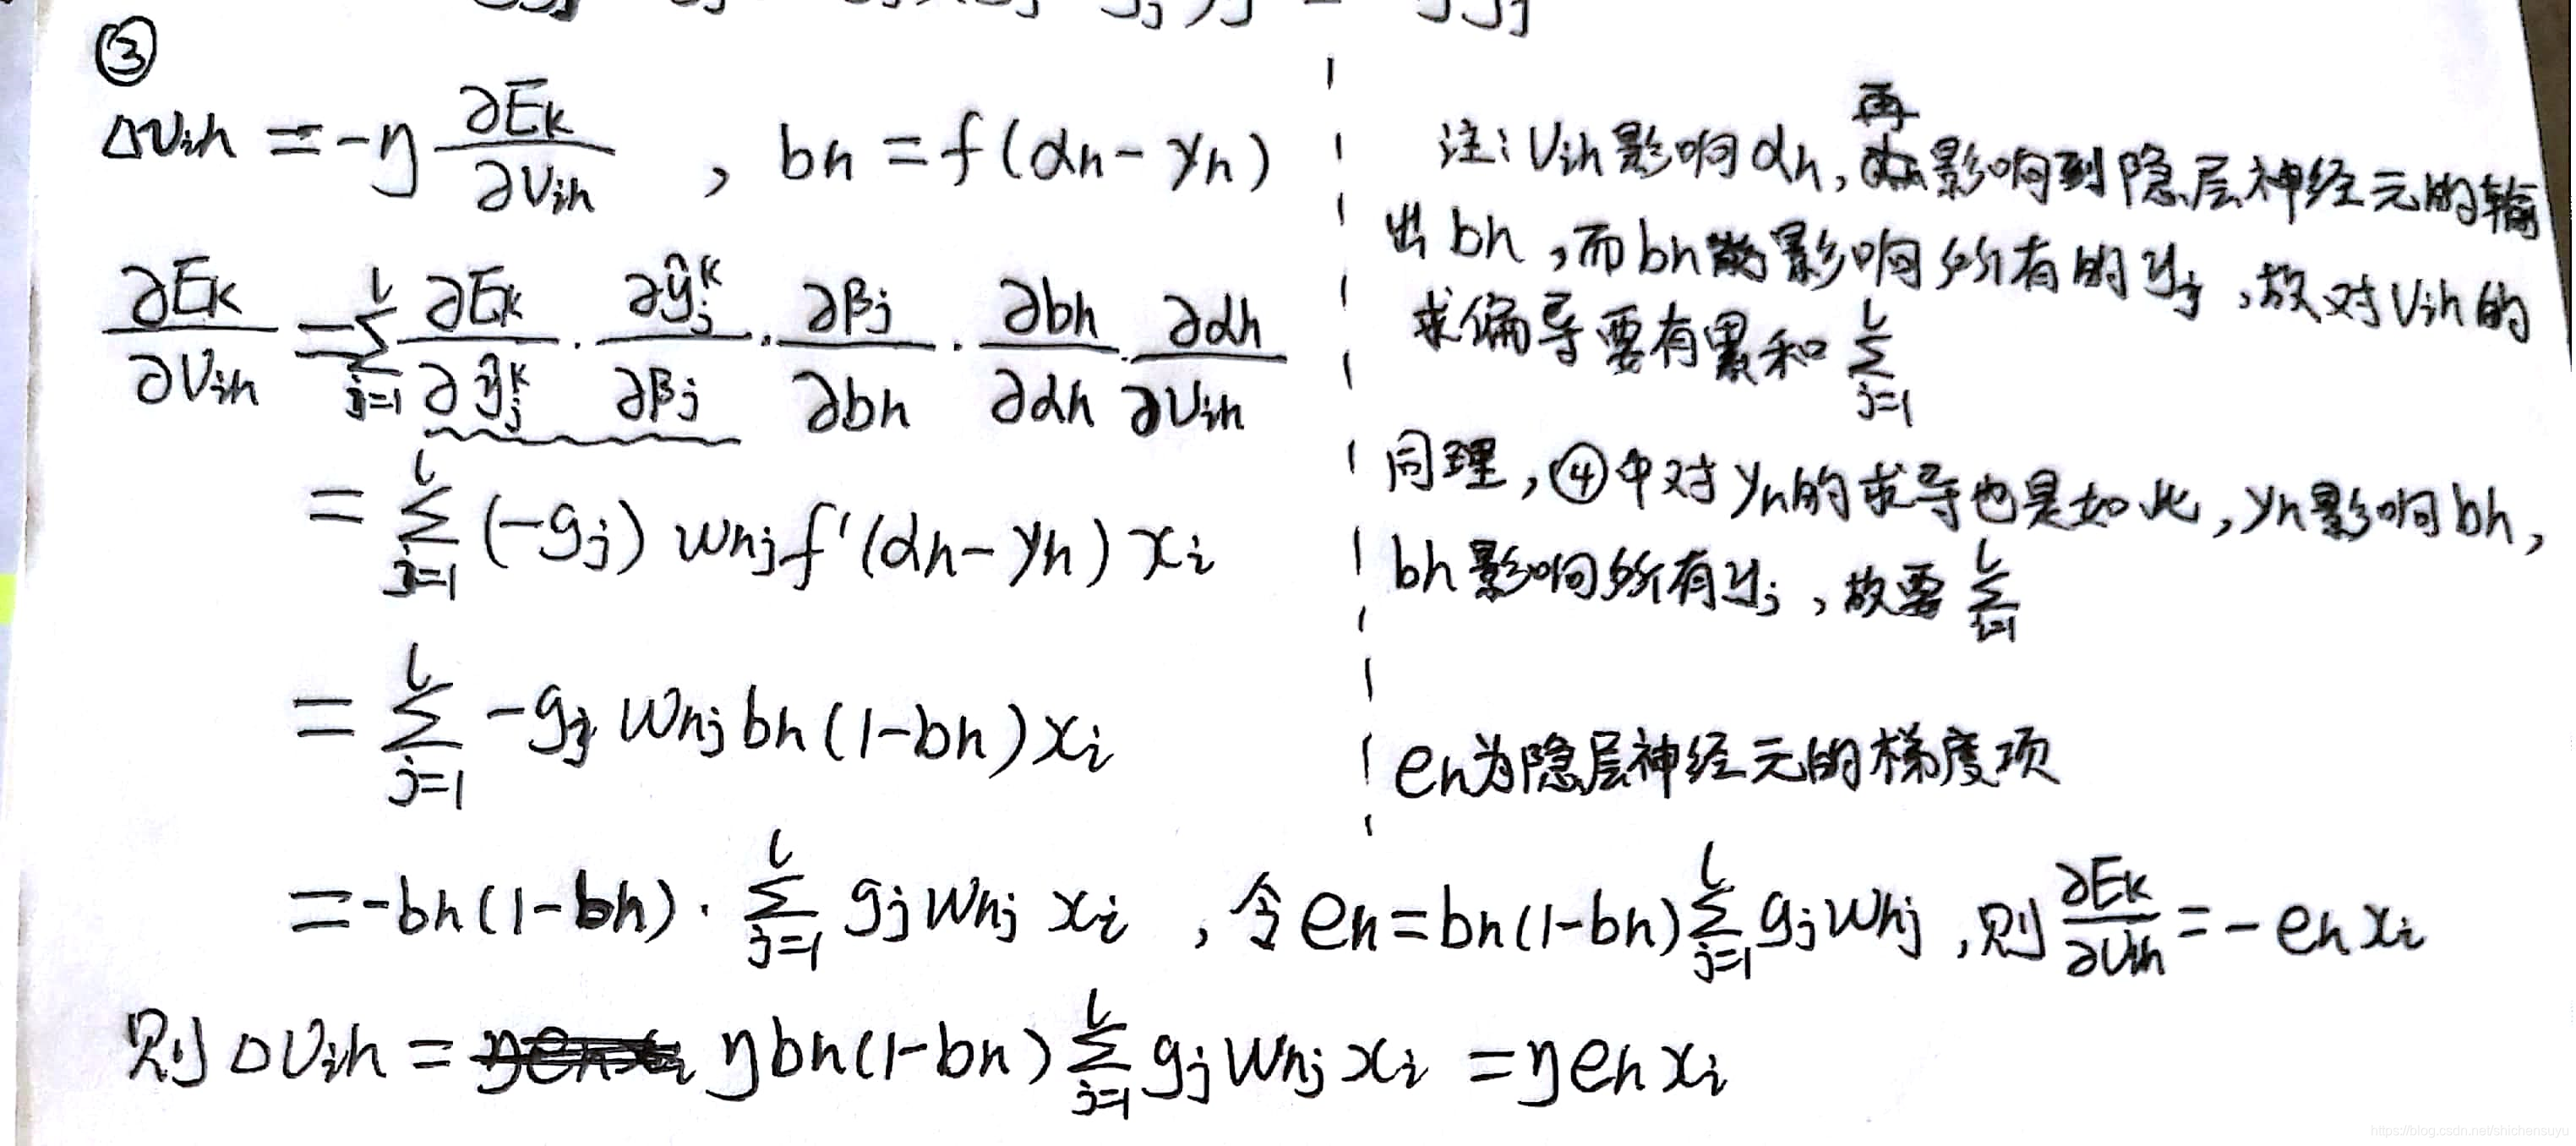 ③
Δvih = -η ∂Ek/∂vih , bh = f(αh - γh)
∂Ek/∂vih = Σ_{j=1}^{l} ∂Ek/∂ŷj^k · ∂ŷj^k/∂βj · ∂βj/∂bh · ∂bh/∂αh · ∂αh/∂vih
= Σ_{j=1}^{l} (-gj) whj f'(αh - γh) xi
= Σ_{j=1}^{l} -gj whj bh(1-bh) xi
= -bh(1-bh) · Σ_{j=1}^{l} gj whj xi , 令 eh = bh(1-bh) Σ_{j=1}^{l} gj whj , 则 ∂Ek/∂vih = -eh xi
则 Δvih = η bh(1-bh) Σ_{j=1}^{l} gj whj xi = η eh xi
注: vih影响αh, 再影响到隐层神经元的输
出bh, 而bh影响所有的yj, 故对vih的
求偏导要有累和 Σ_{j=1}^{l}
同理, ④中对γh的求导也是如此, γh影响bh,
bh影响所有yj, 故要 Σ_{j=1}^{l}
eh为隐层神经元的梯度项
https://blog.csdn.net/shichensuyu